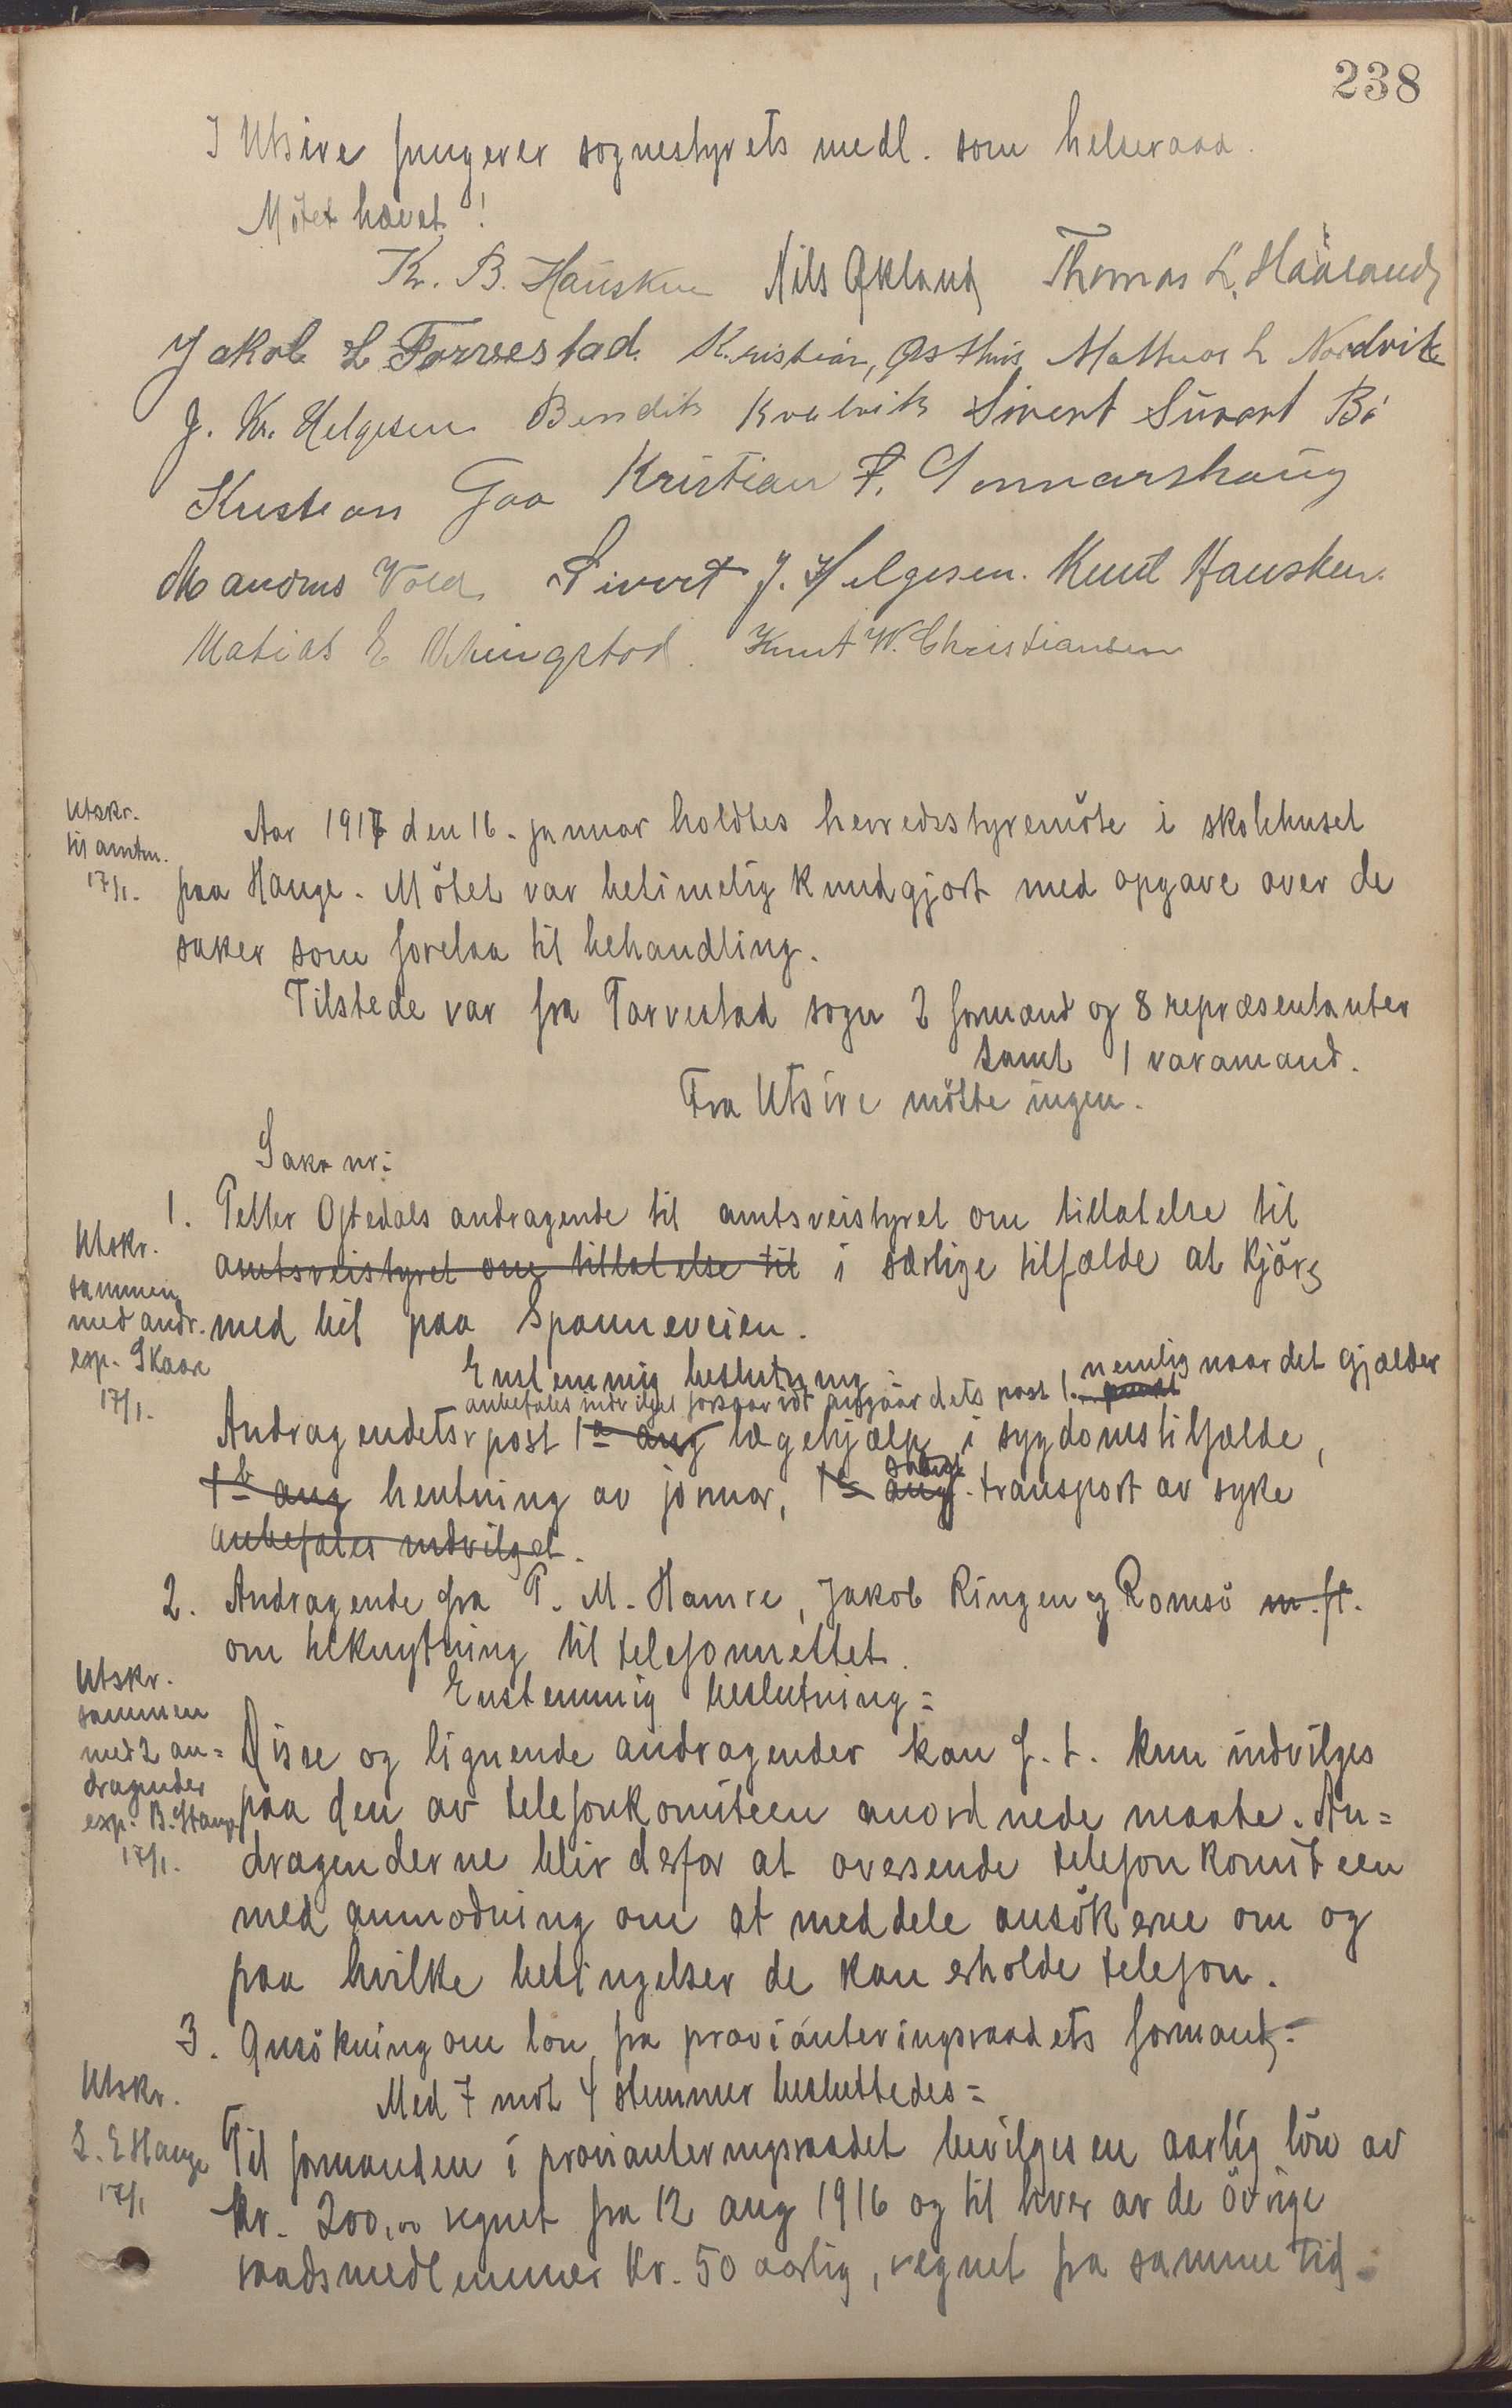 238
I Utsire fungerer sognestyrets medl. som helseraad.
Mötet hævet!
Kr. B. Hausken Nils Økland Thomas L. Haaland
Jakob L Torvestad. Kristian Østhus Mathias L Nordvik
J. Kr. Helgesen Bendik Kvalvik Sivert Sivert Bö
Kristian Goa Kristian F. Gunnarshaug
Mandrus Vold Sivert J. Helgesen. Knut Hausken.
Matias E Vikingstad. Knut W. Christiansen
Utskr.
til amtm.
17/1.
Aar 1917 den 16. januar holdtes herredsstyremöte i skolehuset
paa Hauge. Mötet var betimelig kundgjort med opgave over de
saker som forelaa til behandling.
Tilstede var fra Torvestad sogn 2 formænd og 8 repræsentanter
samt 1 varamand.
Fra Utsire mötte ingen.
Sak nr:
Utskr.
sammen
med andr.
exp. Skaar
17/1.
1. Petter Oftedals andragende til amtsveistyret om tillatelse til
amtsveistyret om tillatelse til i særlige tilfælde at kjöre
med bil paa Spanneveien.
Enstemmig beslutning:
anbefales indvilget forsaavidt angaar dets post 1. punkt nemlig naar det gjælder
Andragendets post 1a ang lægehjælp i sygdomstilfælde,
1b ang hentning av jormor, 1c ang. transport av syke
anbefales indvilget.
2. Andragende fra P. M. Hamre, Jakob Ringen og Romsö m. fl.
om tilknytning til telefonnettet.
Enstemmig beslutning:
Utskr.
sammen
med 2 an=
dragender
exp. B. Hauge
17/1.
Disse og lignende andragender kan f. t. kun indvilges
paa den av telefonkomiteen anordnede maate. An=
dragenderne blir derfor at oversende telefonkomiteen
med anmodning om at meddele ansökerne om og
paa hvilke betingelser de kan erholde telefon.
3. Ansökning om lön fra provianteringsraadets formand:
Med 7 mot 4 stemmer besluttedes:
Utskr.
S. E Hauge
17/1
Til formanden i provianteringsraadet bevilges en aarlig lön av
kr. 200,00 regnet fra 12 aug 1916 og til hver av de övrige
raadsmedlemmer kr. 50 aarlig, regnet fra samme tid.